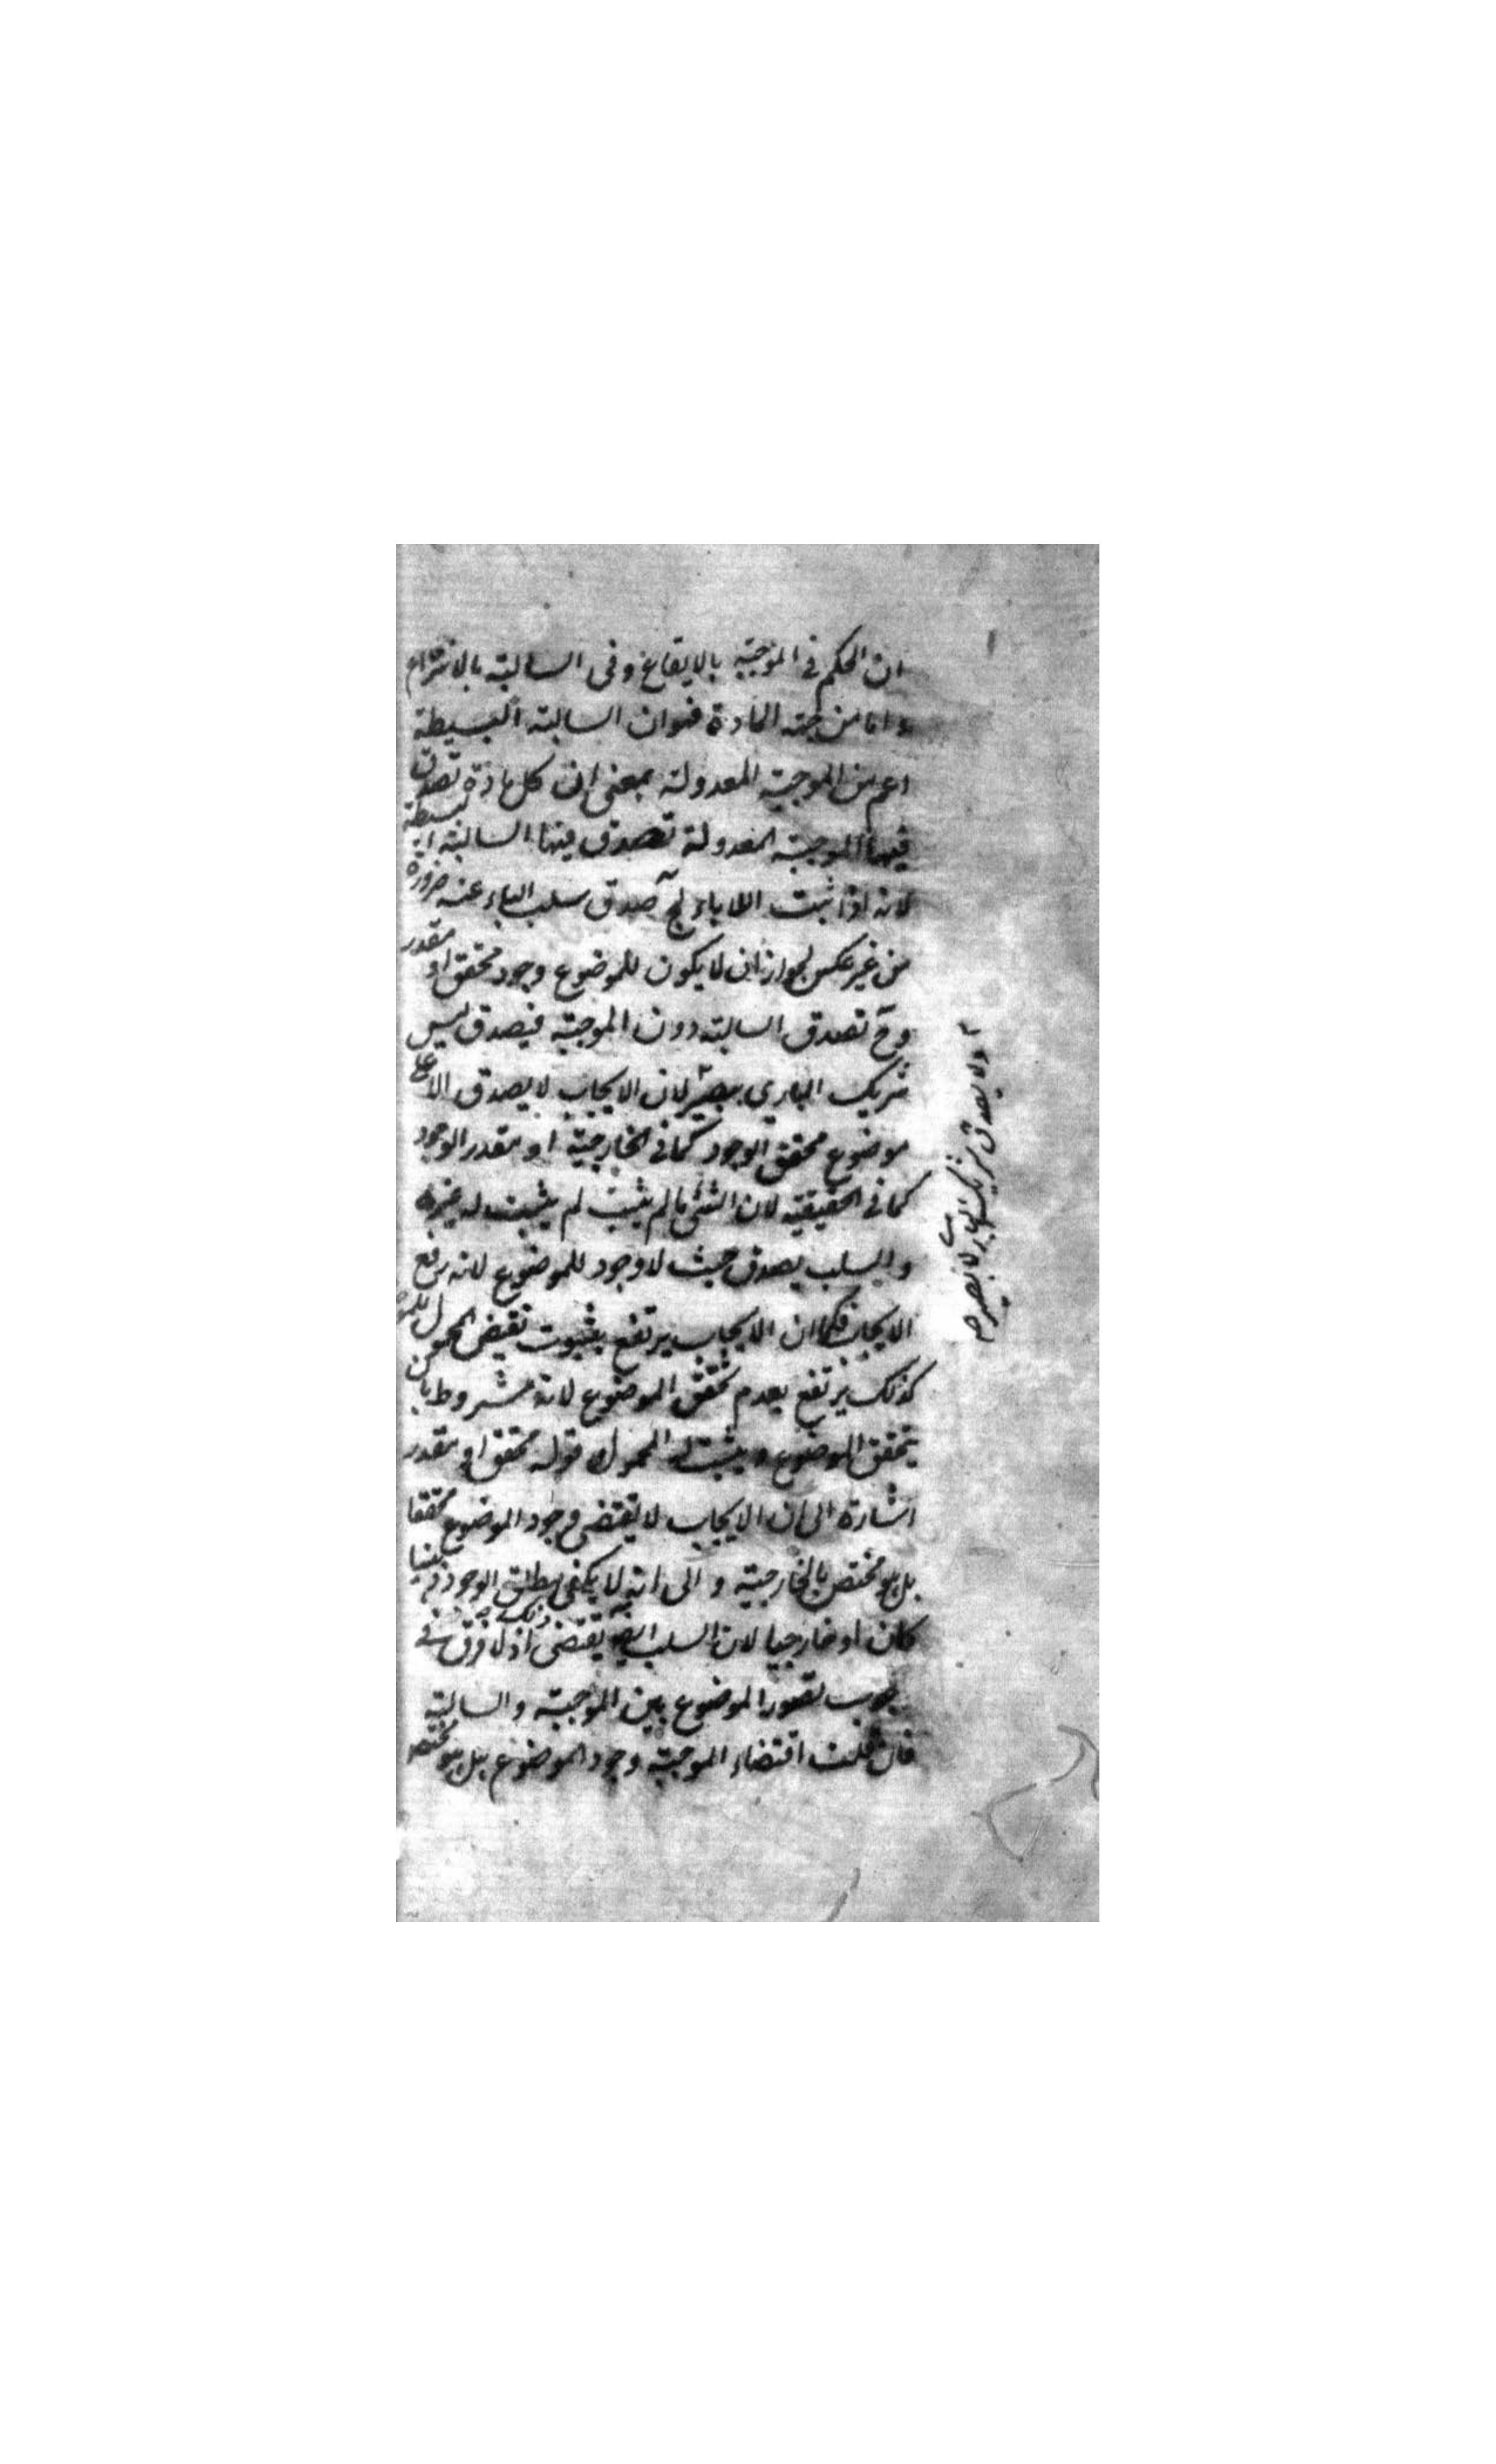 ان الحكم في الموجبة بالايقاع وفي السالبة بالانتزاع
واما من جهة المادة فهو ان السالبة البسيطة
اعم من الموجبة المعدولة بمعنى ان كل مادة تصدق
فيها الموجبة المعدولة تصدق فيها السالبة البسيطة
لانه اذا ثبت اللاباء لج صدق سلب الباء عنه ضرورة
من غير عكس لجواز ان لا يكون للموضوع وجود محقق او مقدر
وح تصدق السالبة دون الموجبة فيصدق ليس
شريك الباري ببصير لان الايجاب لا يصدق الا على
موضوع محقق الوجود كما في الخارجية او مقدر الوجود
كما في الحقيقية لان الشئ ما لم يثبت لم يثبت له غيره
والسلب يصدق حيث لا وجود للموضوع لانه رفع
الايجاب فكما ان الايجاب يرتفع بثبوت نقيض المحمول للمو
كذلك يرتفع بعدم تحقق الموضوع لانه مشروط بان
يتحقق الموضوع ويثبت له المحمول قوله محقق او مقدر
اشارة الى ان الايجاب لا يقتضى وجود الموضوع محققا
بل هو مختص بالخارجية والى انه لا يكفى مطلق الوجود ذهنيا
كان او خارجيا لان السلب ايضا يقتضى ذلك اذ لا فرق في
وجوب تصور الموضوع بين الموجبة والسالبة
فان قلت اقتضاء الموجبة وجود الموضوع بل هو مختص
ولا يصدق شريك الباري لا بصير صح